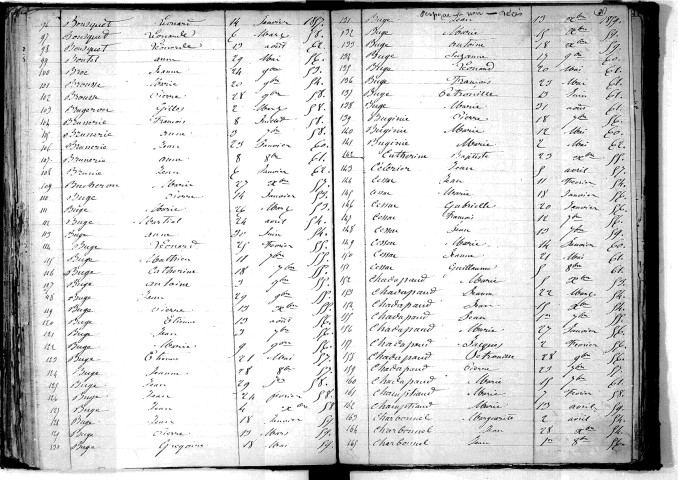 96 Bousquet Léonard 14 Janvier 1857.
97 Bousquet Léonarde 6 Mars 58.
98 Bousquet 13 août 62.
99 Boutel anne 29 Mai 56.
100 Broc Jeanne 24 9bre 53.
101 Brousse Marie 20 54.
102 Brousse Pierre 28 9bre 58.
103 Gilles 2 Mars 58.
104 Brunerie François 8 Juillet 58.
105 Brunerie anne 58.
106 Brunerie Jean 23 Janvier 60.
107 Brunerie anne 8 8bre 61.
108 Jean 6 Janvier 62.
109 Bucheron Marie 27 Xbre 57.
110 Buge Pierre 14 Janvier 53.
111 Buge Marie 26 Mars 53.
112 Buge Martial 24 avril 54.
113 Buge anne 30 Juin 54.
114 Buge Léonard 25 février 55.
115 Buge Mathieu 11 7bre 55.
116 Buge Catherine 18 7bre 55.
117 Buge antoine 3 9bre 55.
118 Buge Jean 29 9bre 55.
119 Buge Pierre 13 Xbre 55.
120 Buge Etienne 13 août 56.
121 Buge Jean 3 9bre 56.
122 Buge Marie 9 9bre 56.
123 Buge Etienne 21 Mai 57.
124 Buge Jeanne 28 8bre 57.
125 Buge Jean 29 58.
126 Buge Jean 24 février 58.
127 Buge Jean 4 Xbre 58.
128 Buge Jean 18 Janvier 59.
129 Buge Pierre 13 Mars 59.
130 Buge Grégoire 18 Mai 59.
131 Buge Jean 13 Xbre 1859.
132 Buge Marie 15 Xbre 59.
133 Buge antoine 18 Xbre 59.
134 Buge Suzanne 13 9bre 60.
135 Buge Léonard 20 Mai 61.
136 Buge François 23 Mai 61.
137 Buge Pétronille 23 Juin 61.
138 Buge Marie 21 août 61.
139 Buginie Pierre 18 7bre 56.
140 Buginie Marie 12 Mai 60.
141 Buginie Marie 2 Mai 62.
142 Catherine Baptiste 23 Xbre 58.
143 Célérier Jean 5 avril 57.
144 Cessac Jean 11 février 54.
145 Cessac Marie 18 Janvier 56.
146 Cessac Gabrielle 20 Janvier 56.
147 Cessac François 12 7bre 56.
148 Cessac Jean 13 7bre 59.
149 Cessac Marie 14 Janvier 60.
150 Cessac Jeanne 21 Mai 61.
151 Cessac Guillaume 5 8bre 61.
152 Chadapaud Marie 5 Xbre 53.
153 Chadapaud Jeanne 22 Mars 54.
Chadapaud Jean 15 Xbre 54.
155 Chadapaud Jean 7bre 55.
156 Chadapaud Marie 27 Janvier 56.
157 Chadapaud Jacques 2 février 56.
158 Chadapaud 28 9bre 56.
159 Chadapaud Pierre 23 7bre 57.
160 Chadapaud Marie 15 7bre 61.
161 Champtiaud Marie 7 févr. 58.
162 Champtiaud Marie 13 avril 59.
163 Charbonnel Marguerite 2 avril 54.
164 Charbonnel Jean 28 Xbre 54.
165 Charbonnel Jean 1er 8bre 56.